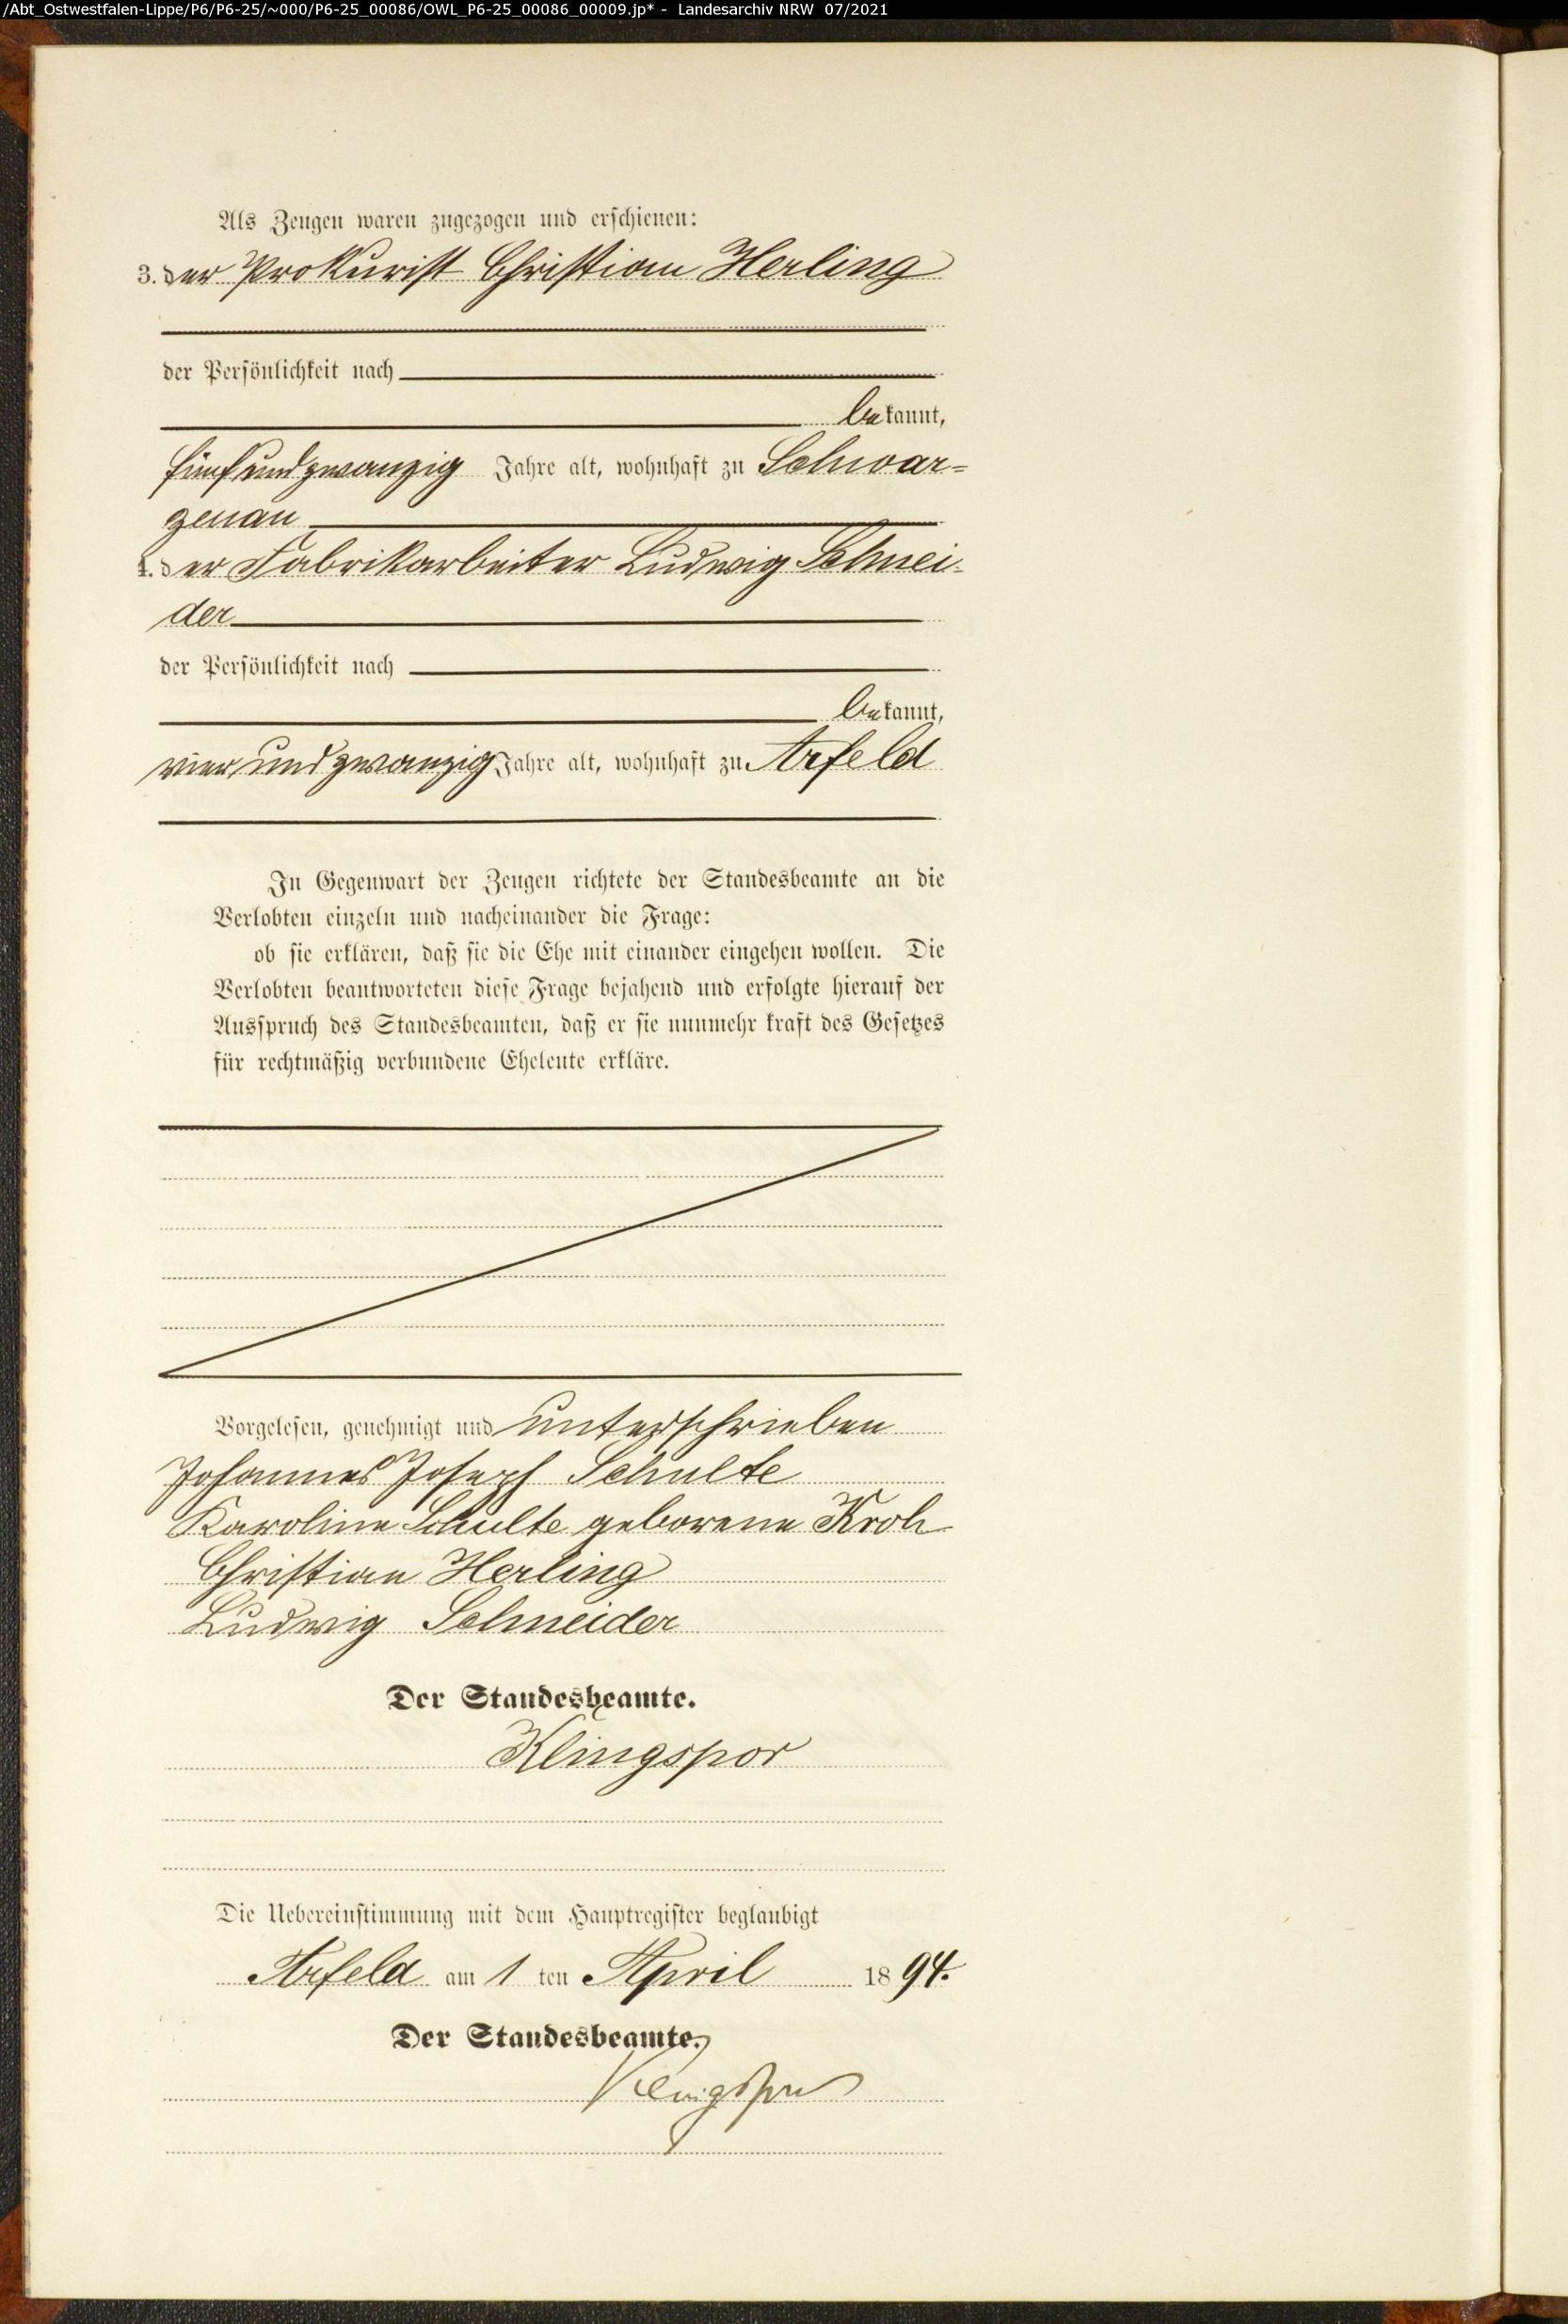 /Abt_Ostwestfalen-Lippe/P6/P6-25/~000/P6-25_00086/OWL_P6-25_00086_00009.jp* - Landesarchiv NRW 07/2021
Als Zeugen waren zugezogen und erschienen:
3. der Prokurist Christian Herling
der Persönlichkeit nach
bekannt,
fünfundzwanzig Jahre alt, wohnhaft zu Schwar-
zenau
4. der Fabrikarbeiter Ludwig Schnei-
der
der Persönlichkeit nach
bekannt,
vierundzwanzig Jahre alt, wohnhaft zu Arfeld
In Gegenwart der Zeugen richtete der Standesbeamte an die
Verlobten einzeln und nacheinander die Frage:
ob sie erklären, daß sie die Ehe mit einander eingehen wollen. Die
Verlobten beantworteten diese Frage bejahend und erfolgte hierauf der
Ausspruch des Standesbeamten, daß er sie nunmehr kraft des Gesetzes
für rechtmäßig verbundene Eheleute erkläre.
Vorgelesen, genehmigt und unterschrieben
Johannes Joseph Schulte
Karoline Schulte geborene Kroh
Christian Herling
Ludwig Schneider
Der Standesbeamte.
Klingspor
Die Uebereinstimmung mit dem Hauptregister beglaubigt
Arfeld am 1 ten April 1894.
Der Standesbeamte.
Klingspor